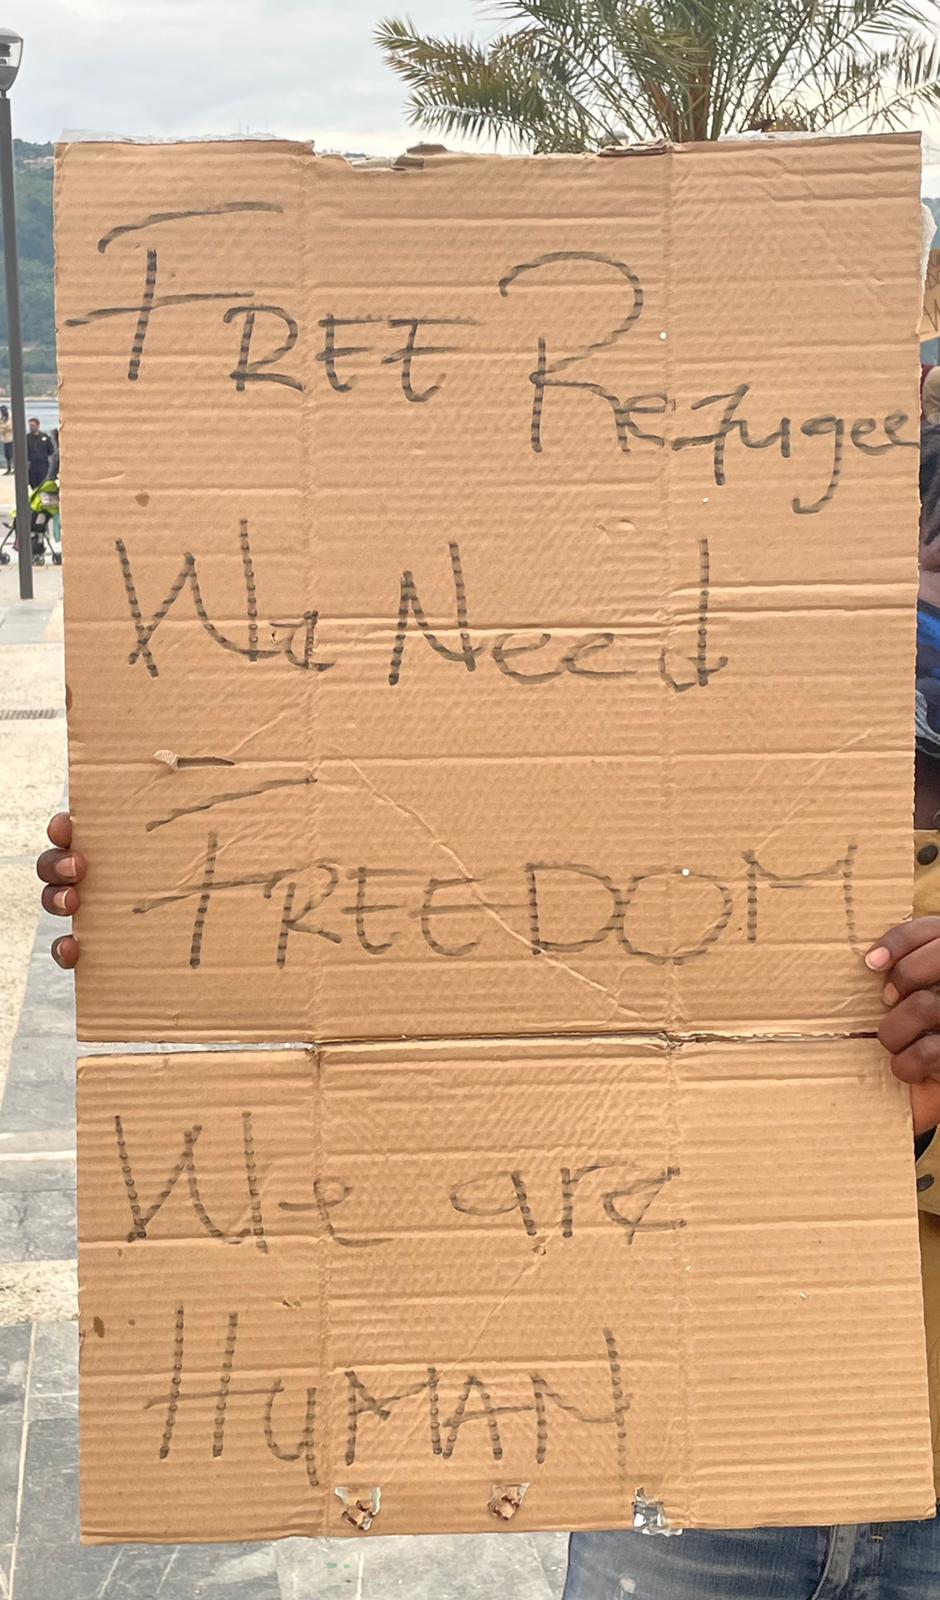 FREE Refugee
We Need
FREEDOM
We are
HuMAN